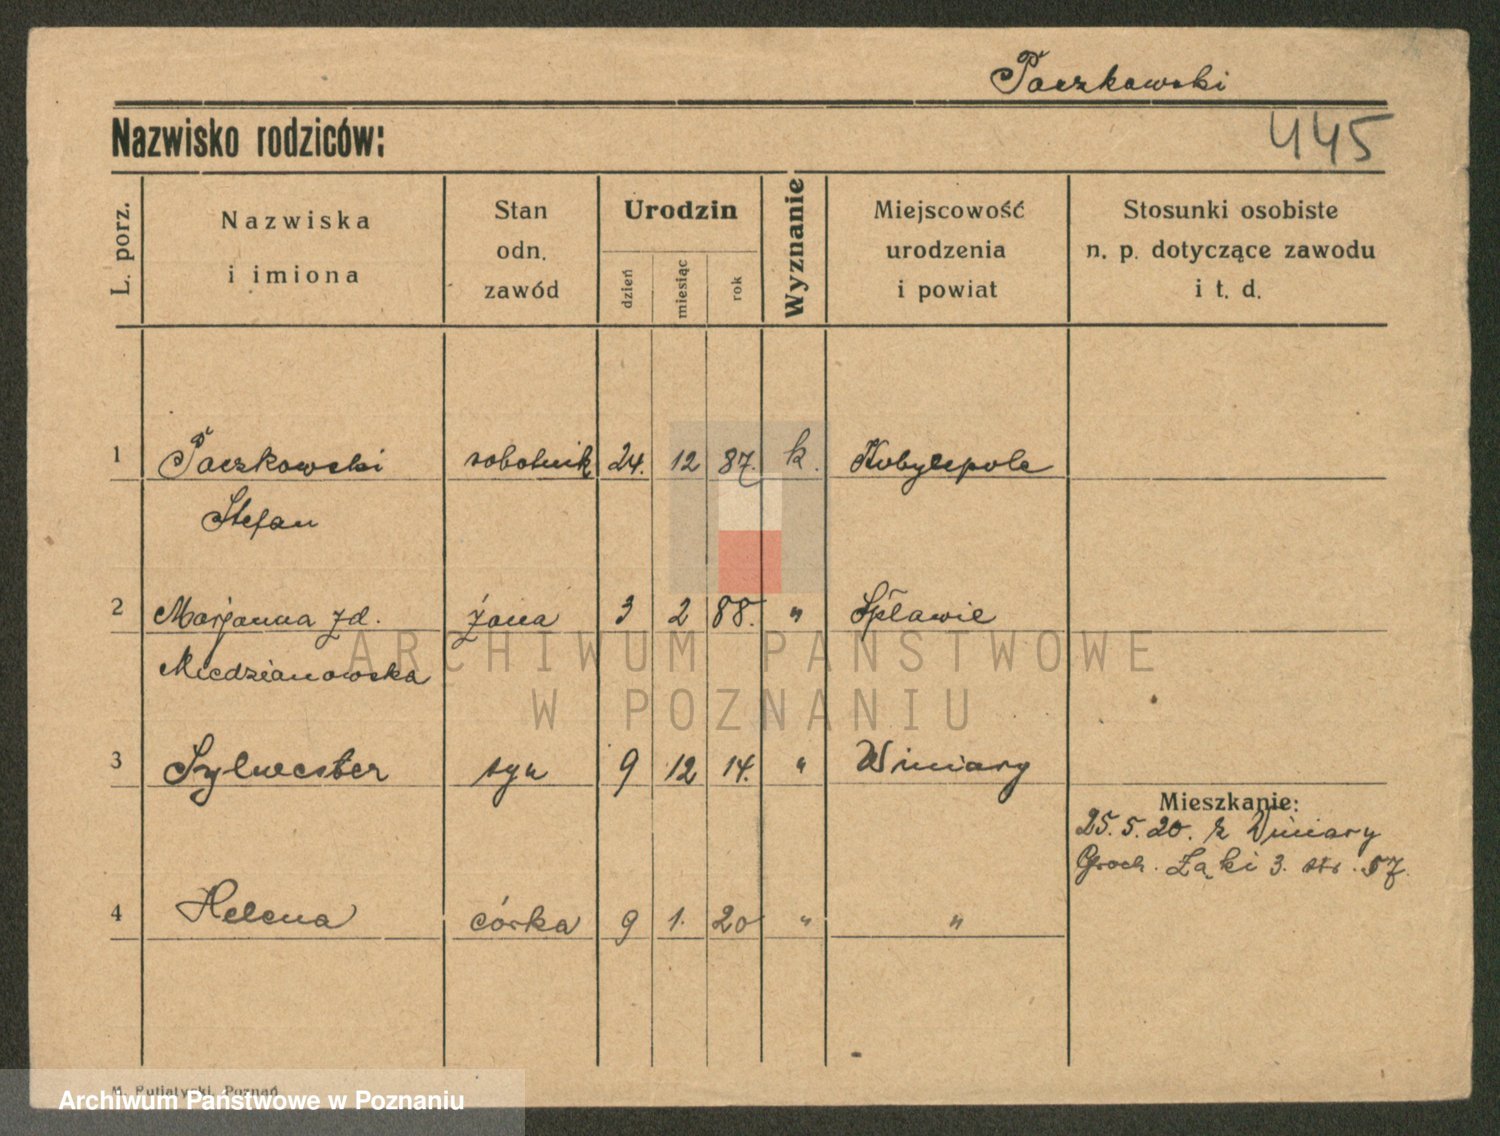 Paczkowski
445
Nazwisko rodziców:
L. porz.
Nazwiska
i imiona
Stan
odn.
zawód
Urodzin
dzień
miesiąc
rok
Wyznanie
Miejscowość
urodzenia
i powiat
Stosunki osobiste
n. p. dotyczące zawodu
i t. d.
1 Paczkowski robotnik 24. 12 87. k. Kobylepole
Stefan
2 Marjanna zd. żona 3 2 88. " Spławie
Miedzianowska
3 Sylwester syn 9 12 14. " Winiary
Mieszkanie:
25. 5. 20. z Winiary
Groch. Łąki 3. str. 57.
4 Helena córka 9 1. 20 " "
ARCHIWUM PAŃSTWOWE
W POZNANIU
M. Putiatycki, Poznań
Archiwum Państwowe w Poznaniu